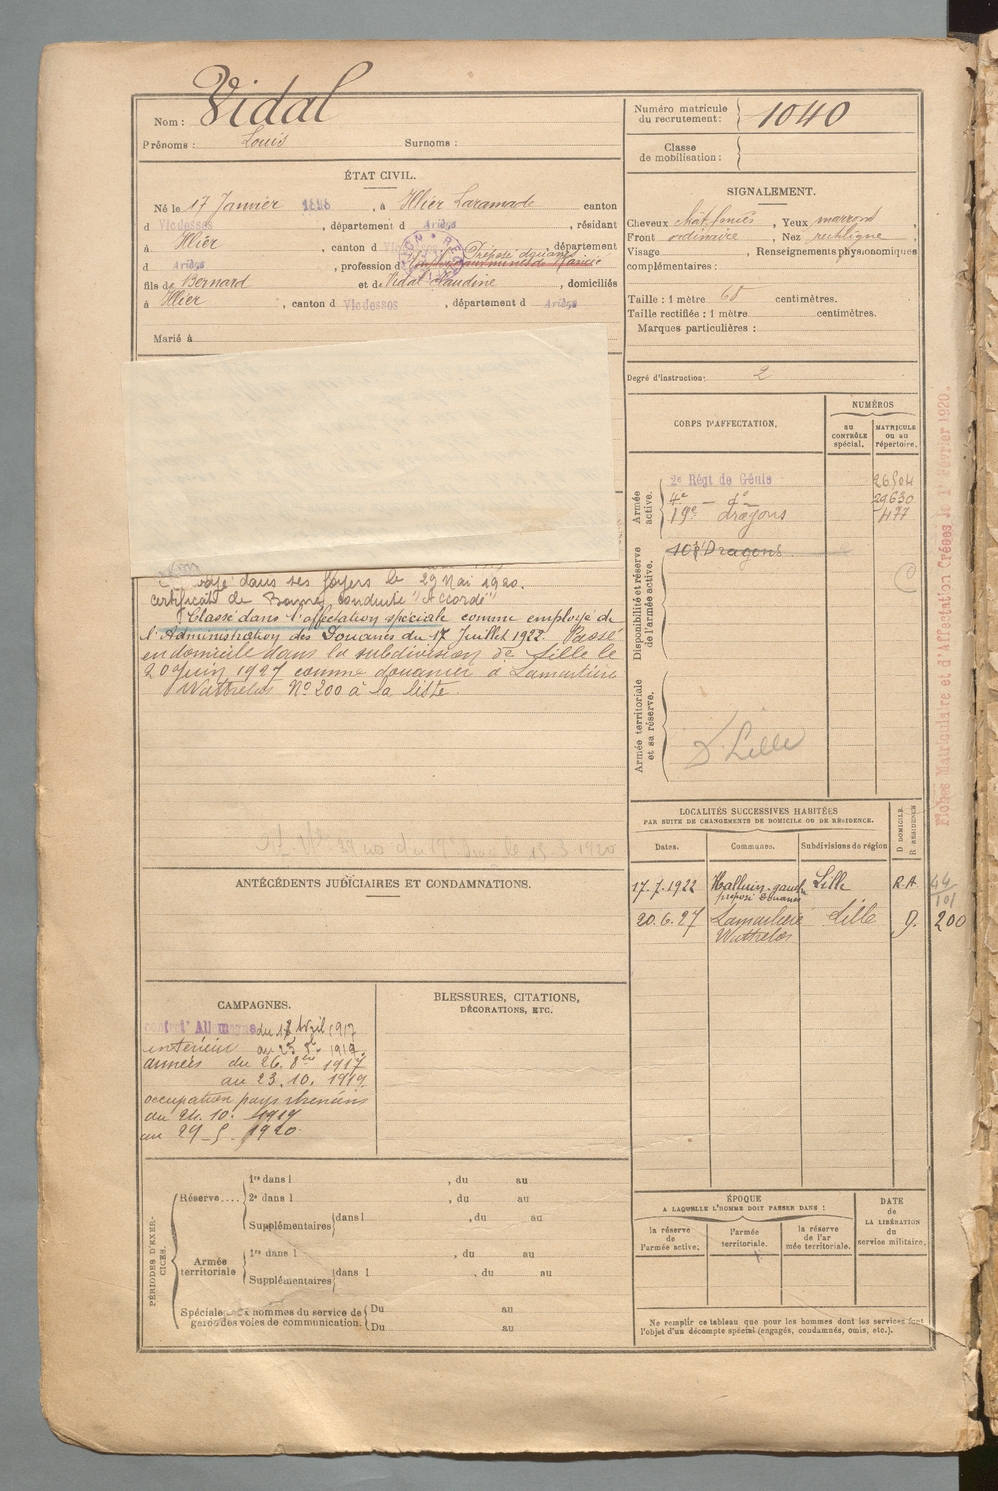 Nom : Vidal
Prénoms : Louis Surnoms :
Numéro matricule du recrutement : 1040
Classe de mobilisation :
ÉTAT CIVIL.
Né le 17 Janvier 1898, à Illier Laramade canton
d Vicdessos, département d Ariège, résidant
à Illier, canton d Vicdessos, département
d Ariège, profession d Préposé douanes
fils de Bernard et de Vidal Claudine, domiciliés
à Illier, canton d Vicdessos, département d Ariège
Marié à
SIGNALEMENT.
Cheveux chât foncés, Yeux marrons,
Front ordinaire, Nez rectiligne,
Visage , Renseignements physionomiques
complémentaires :
Taille : 1 mètre 68 centimètres.
Taille rectifiée : 1 mètre centimètres.
Marques particulières :
Degré d'instruction : 2
CORPS D'AFFECTATION.
NUMÉROS
au CONTRÔLE spécial.
MATRICULE ou au répertoire.
Armée active.
2e Régt de Génie 26504
4e — do 29630
19e dragons 477
Disponibilité et réserve de l'armée active.
10e Dragons
Armée territoriale et sa réserve.
D. Lille
dans ses foyers le 29 Mai 1920.
certificat de Bonne conduite "Accordé"
Classé dans l'affectation spéciale comme employé de
l'Administration des Douanes du 17 Juillet 1922. Passé
en domicile dans la subdivision de Lille le
20 Juin 1927 comme douanier à Lamartière
Wattrelos. No 200 à la liste.
Fiches Matriculaire et d'Affectation Créées le 1er Février 1920.
LOCALITÉS SUCCESSIVES HABITÉES
PAR SUITE DE CHANGEMENTS DE DOMICILE OU DE RÉSIDENCE.
D DOMICILE.
R RÉSIDENCE
Dates. Communes. Subdivisions de région
17.7.1922 Halluin préposé Douanes Lille R.A. 44/101
20.6.27 Wattrelos Lille D. 200
ANTÉCÉDENTS JUDICIAIRES ET CONDAMNATIONS.
CAMPAGNES.
contre l'Allemagne du 18 Avril 1917
intérieur au 25 8bre 1917.
armées du 26. 8bre 1917
au 23. 10. 1919.
occupation pays rhénans
du 24. 10. 1919
au 29-5. 1920.
BLESSURES, CITATIONS,
DÉCORATIONS, ETC.
PÉRIODES D'EXERCICES.
Réserve....
1re dans l , du au
2e dans l , du au
Supplémentaires dans l , du au
Armée territoriale
1re dans l , du au
Supplémentaires dans l , du au
Spéciale aux hommes du service de garde des voies de communication.
Du au
Du au
ÉPOQUE
A LAQUELLE L'HOMME DOIT PASSER DANS :
la réserve de l'armée active.
l'armée territoriale.
la réserve de l'armée territoriale.
DATE de LA LIBÉRATION du service militaire.
Ne remplir ce tableau que pour les hommes dont les services font
l'objet d'un décompte spécial (engagés, condamnés, omis, etc.).